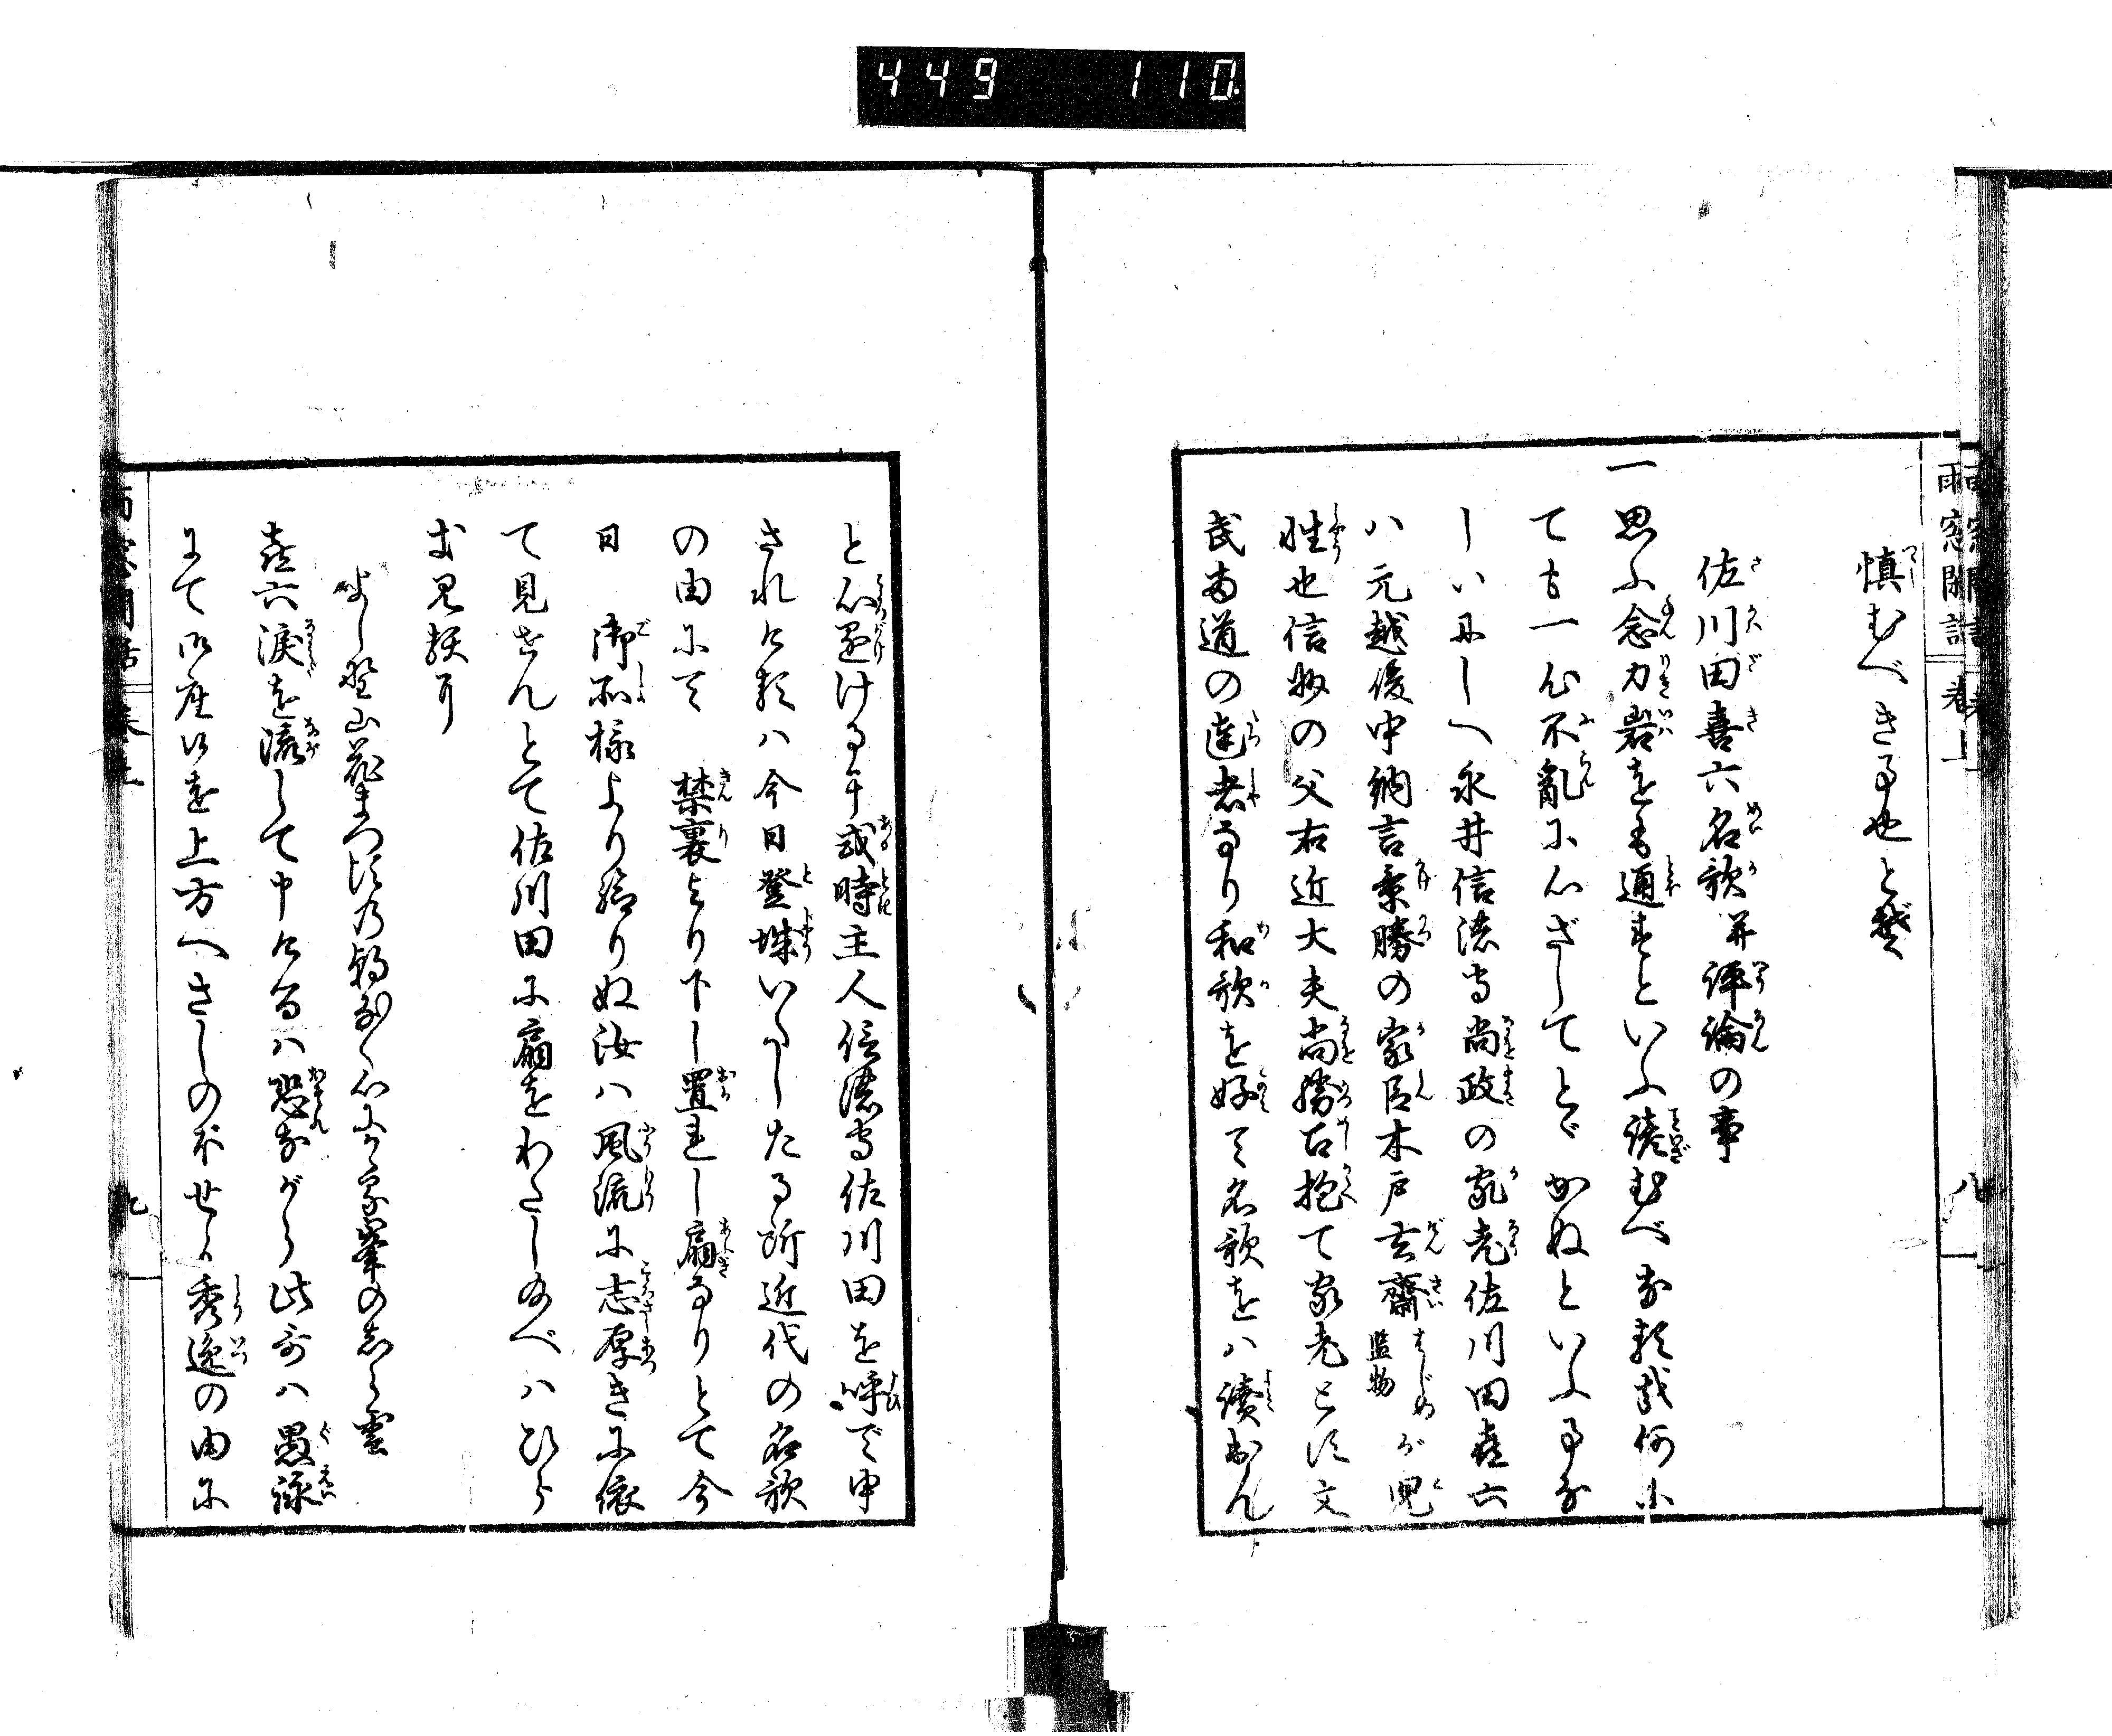 449 110
雨窓閑話 巻上 八
慎むべき事也とぞ
佐川田喜六名歌并評論の事
一思ふ念力岩をも通すといふ諺むべなる哉何に
ても一心不亂に心ざしてとゞかぬといふ事な
しいにしへ永井信濃守尚政の家老佐川田喜六
ハ元越後中納言景勝の家臣木戸玄齋はじめ監物が児
性也信州の父右近大夫尚勝召抱て家老とす文
武両道の達者なり和歌を好て名歌をハ讀出ん
と心懸けるが或時主人信濃守佐川田を呼て申
されけるハ今日登城いたしたる所近代の名歌
の由にて 禁裏より下し置れし扇なりとて今
日 御所様より給りぬ汝ハ風流に志厚きに依
て見せんとて佐川田に扇をわたし給へハひら
き見奉り
よし野山花まつ頃の朝な〳〵心にかゝる峯のしら雲
喜六涙を流して申けるハ恐ながら此哥ハ愚詠
にて御座候を上方へさしのぼせし秀逸の由に